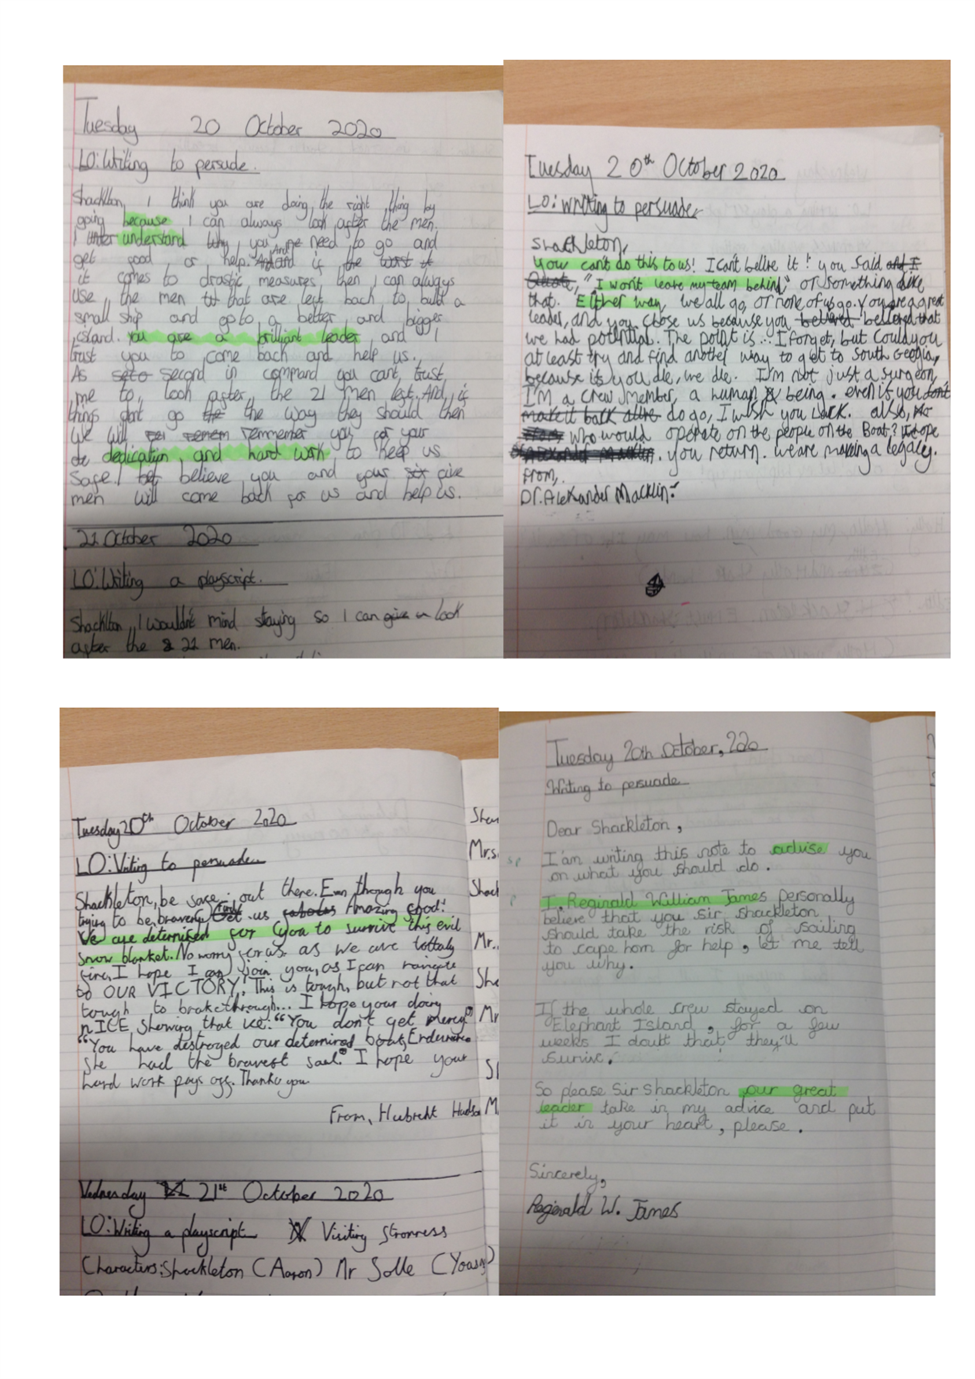 Tuesday 20 October 2020
LO: Writing to persude.
Shackllton, I think you are doing the right thing by
going because I can always look after the men.
I understand why you need to go and
get food or help. And if
it comes to drastic measures, then I can always
use the men that are left back to build a
small ship and go to a better and bigger
island. You are a brilliant leader and I
trust you to come back and help us.
As second in command you can't trust
me to look after the 21 men left. And if
things dont go the way they should then
We will remmember you for your
dedication and hard work to keep us
safe. I believe you and your five
men will come back for us and help us.
21 October 2020
LO: Writing a playscript.
Shacklton, I wouldn't mind staying so I can look
after the 21 men.
Tuesday 20th October 2020
LO: Writing to persuade
Shackleton,
You can't do this to us! I can't belive it! you said
"I won't leave my team behind" or something like
that. Either way, we all go, or none of us go. You are a great
leader, and you chose us because you beleved that
we had potential. The point is... I forget, but could you
at least try and find another way to get to South Georgia,
because if you die, we die. I'm not just a surgeon,
I'm a crew member, a human being. even if you
do go, I wish you luck. also,
who would operate on the people on the Boat? I hope
you return. we are making a legacy.
from,
Dr. Alexander Macklin
Tuesday 20th October 2020
LO: Writing to persuade
Shackleton, be save out there. Even though you
trying to be bravery get us Amazing food!
We are determised for you to survive this evil
snow blanket. No worry for us as we are tottaly
fine. I hope I can join you, as I can navigate
to OUR VICTORY! This is tough, but not that
tough to brake through... I hope your doing
nICE, showing that ice: "You don't get mercy"
"You have destroyed our determined boat, Endurance
she had the bravest sail" I hope your
hard work pays off. Thank you
From, Hubrecht Hudso
Wednesday 21st October 2020
LO: Writing a playscript Visiting Stromness
Characters: Shackleton (Aaron) Mr Solle
Tuesday 20th October, 2020
Writing to persuade
Dear Shackleton,
I am writing this note to advise you
on what you should do.
I, Reginald William James personally
believe that you sir Shackleton
should take the risk of sailing
to cape horn for help, let me tell
you why.
If the whole crew stayed on
Elephant Island, for a few
weeks I doubt that they'll
survive.
So please Sir Shackleton our great
leader take in my advice and put
it in your heart, please.
Sincerely,
Reginald W. James